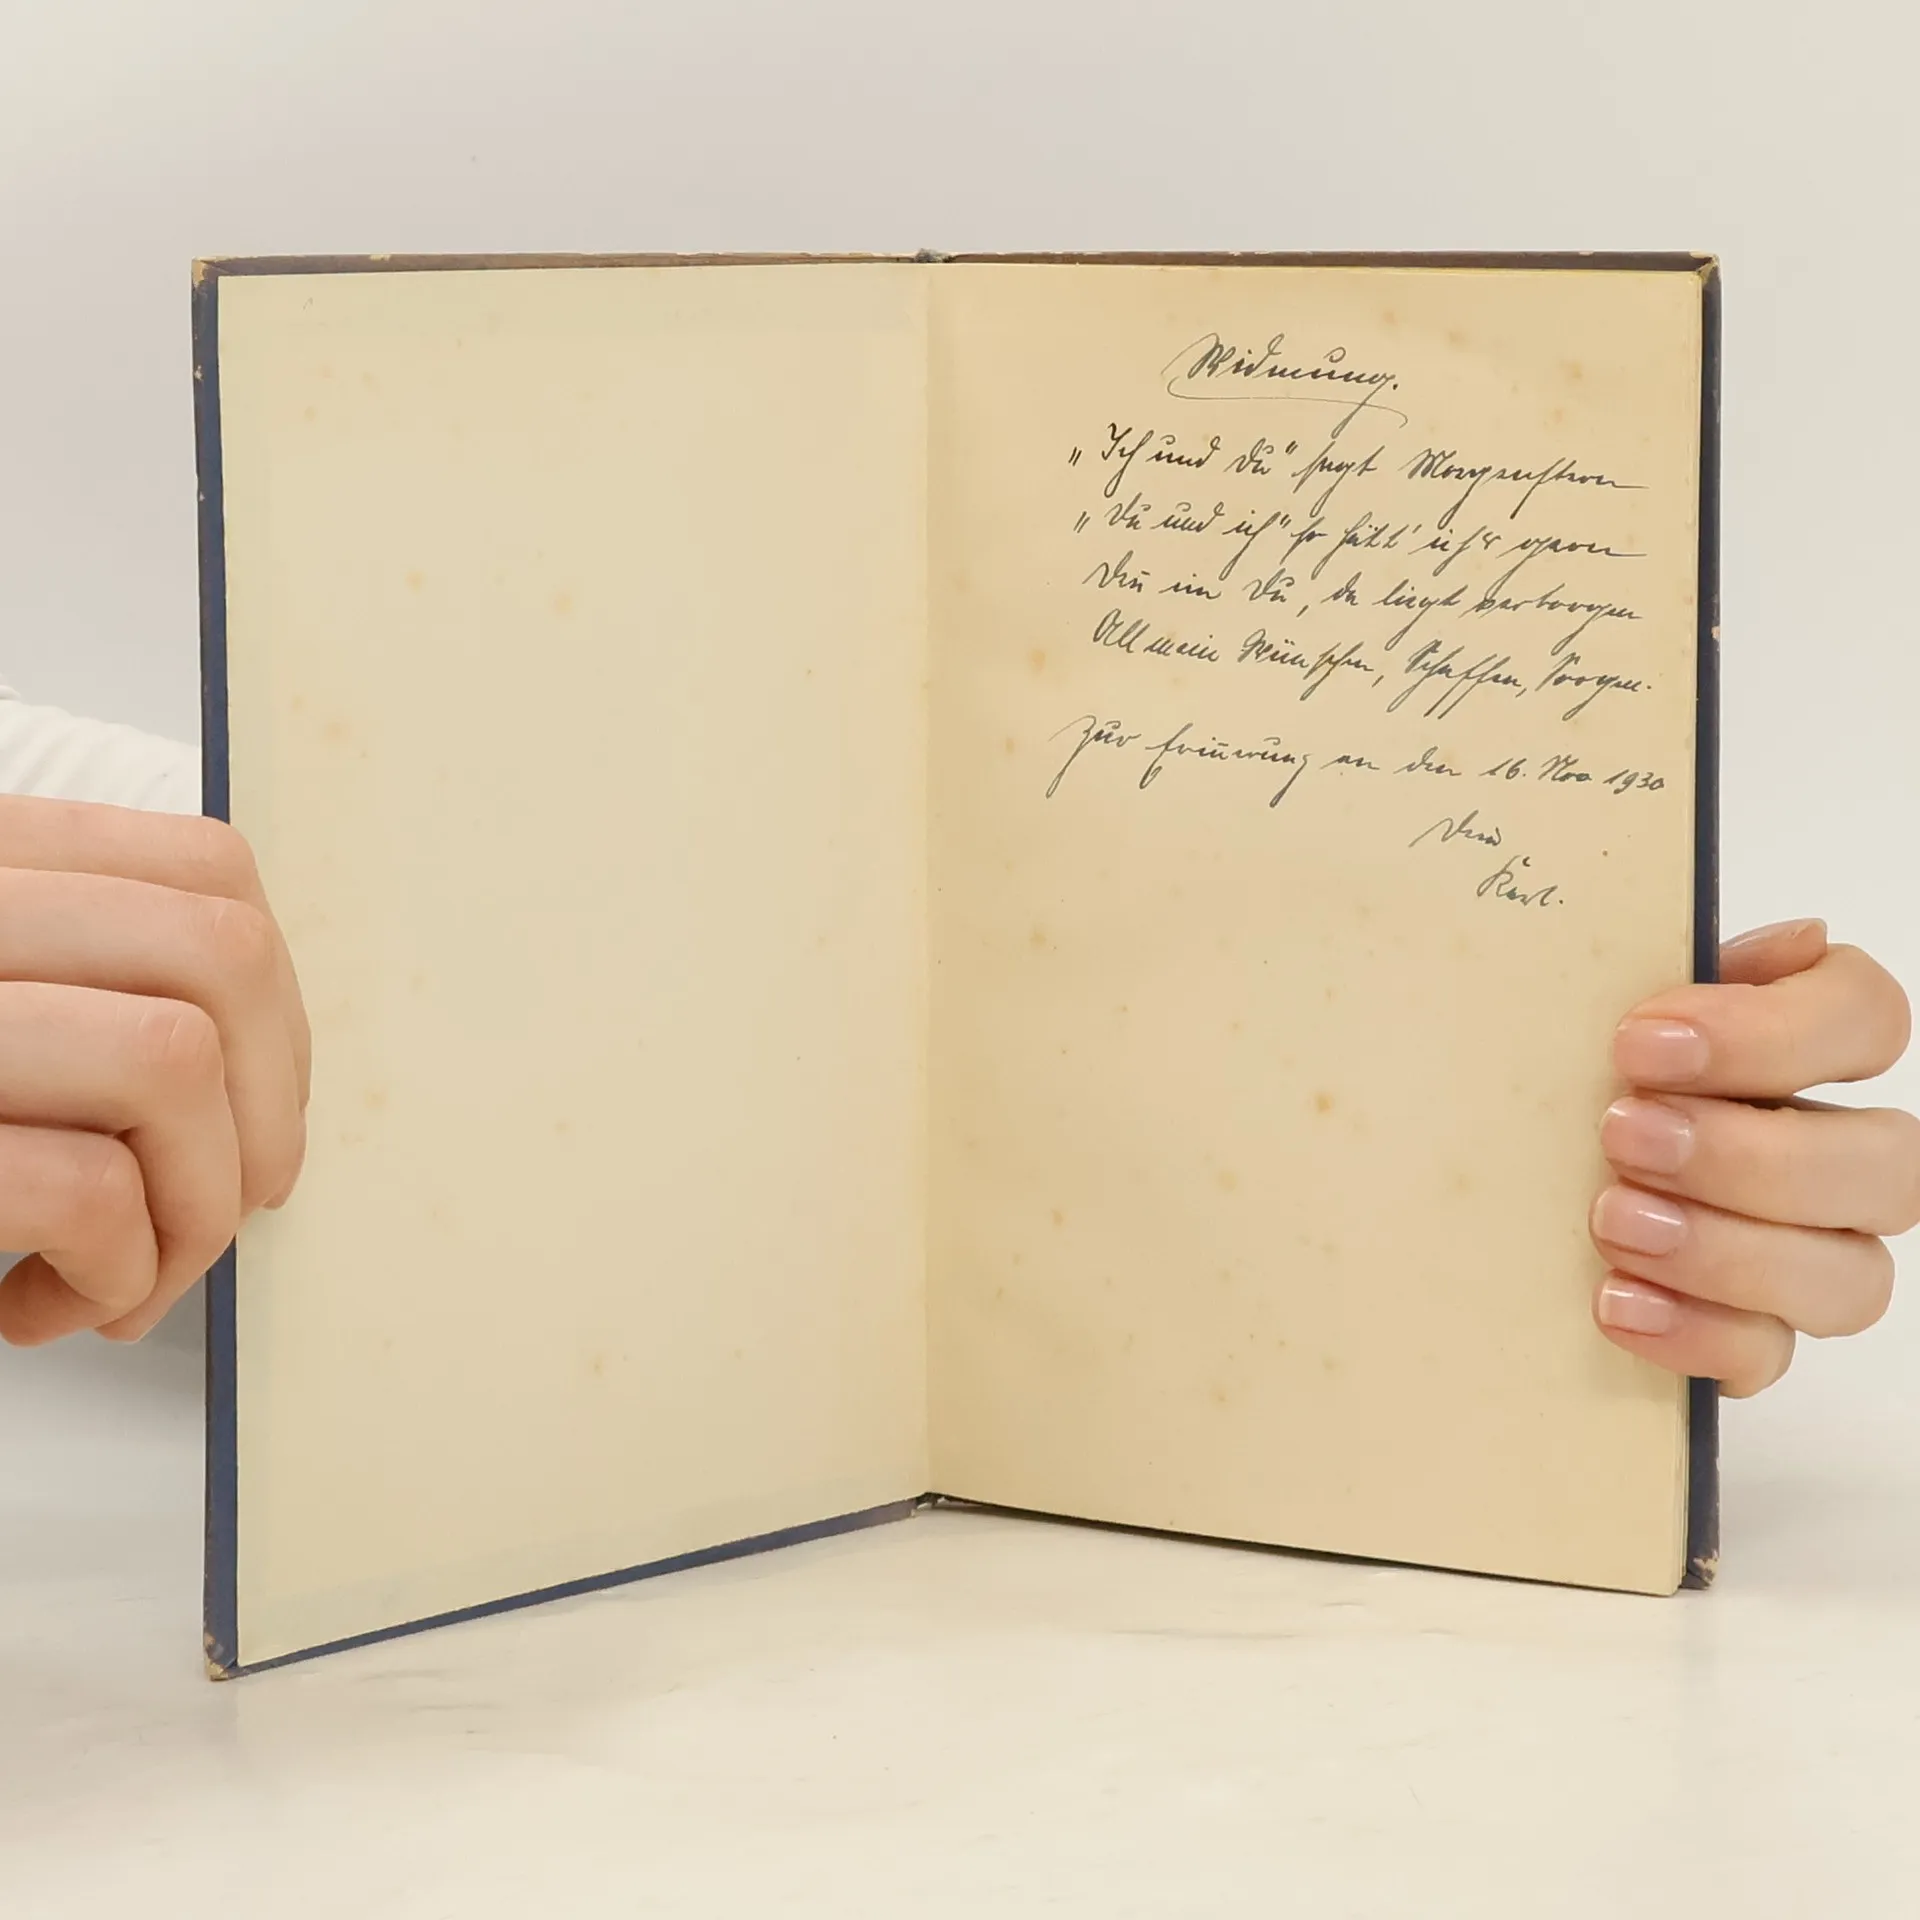 Widmung.
„Ich und Du" sagt Morgenstern
„Du und ich" so hätt' ich's gern
Denn im Du, da liegt verborgen
All mein Wünschen, Schaffen, Sorgen.
Zur Erinnerung an den 16. Nov 1930
Dein
Karl.